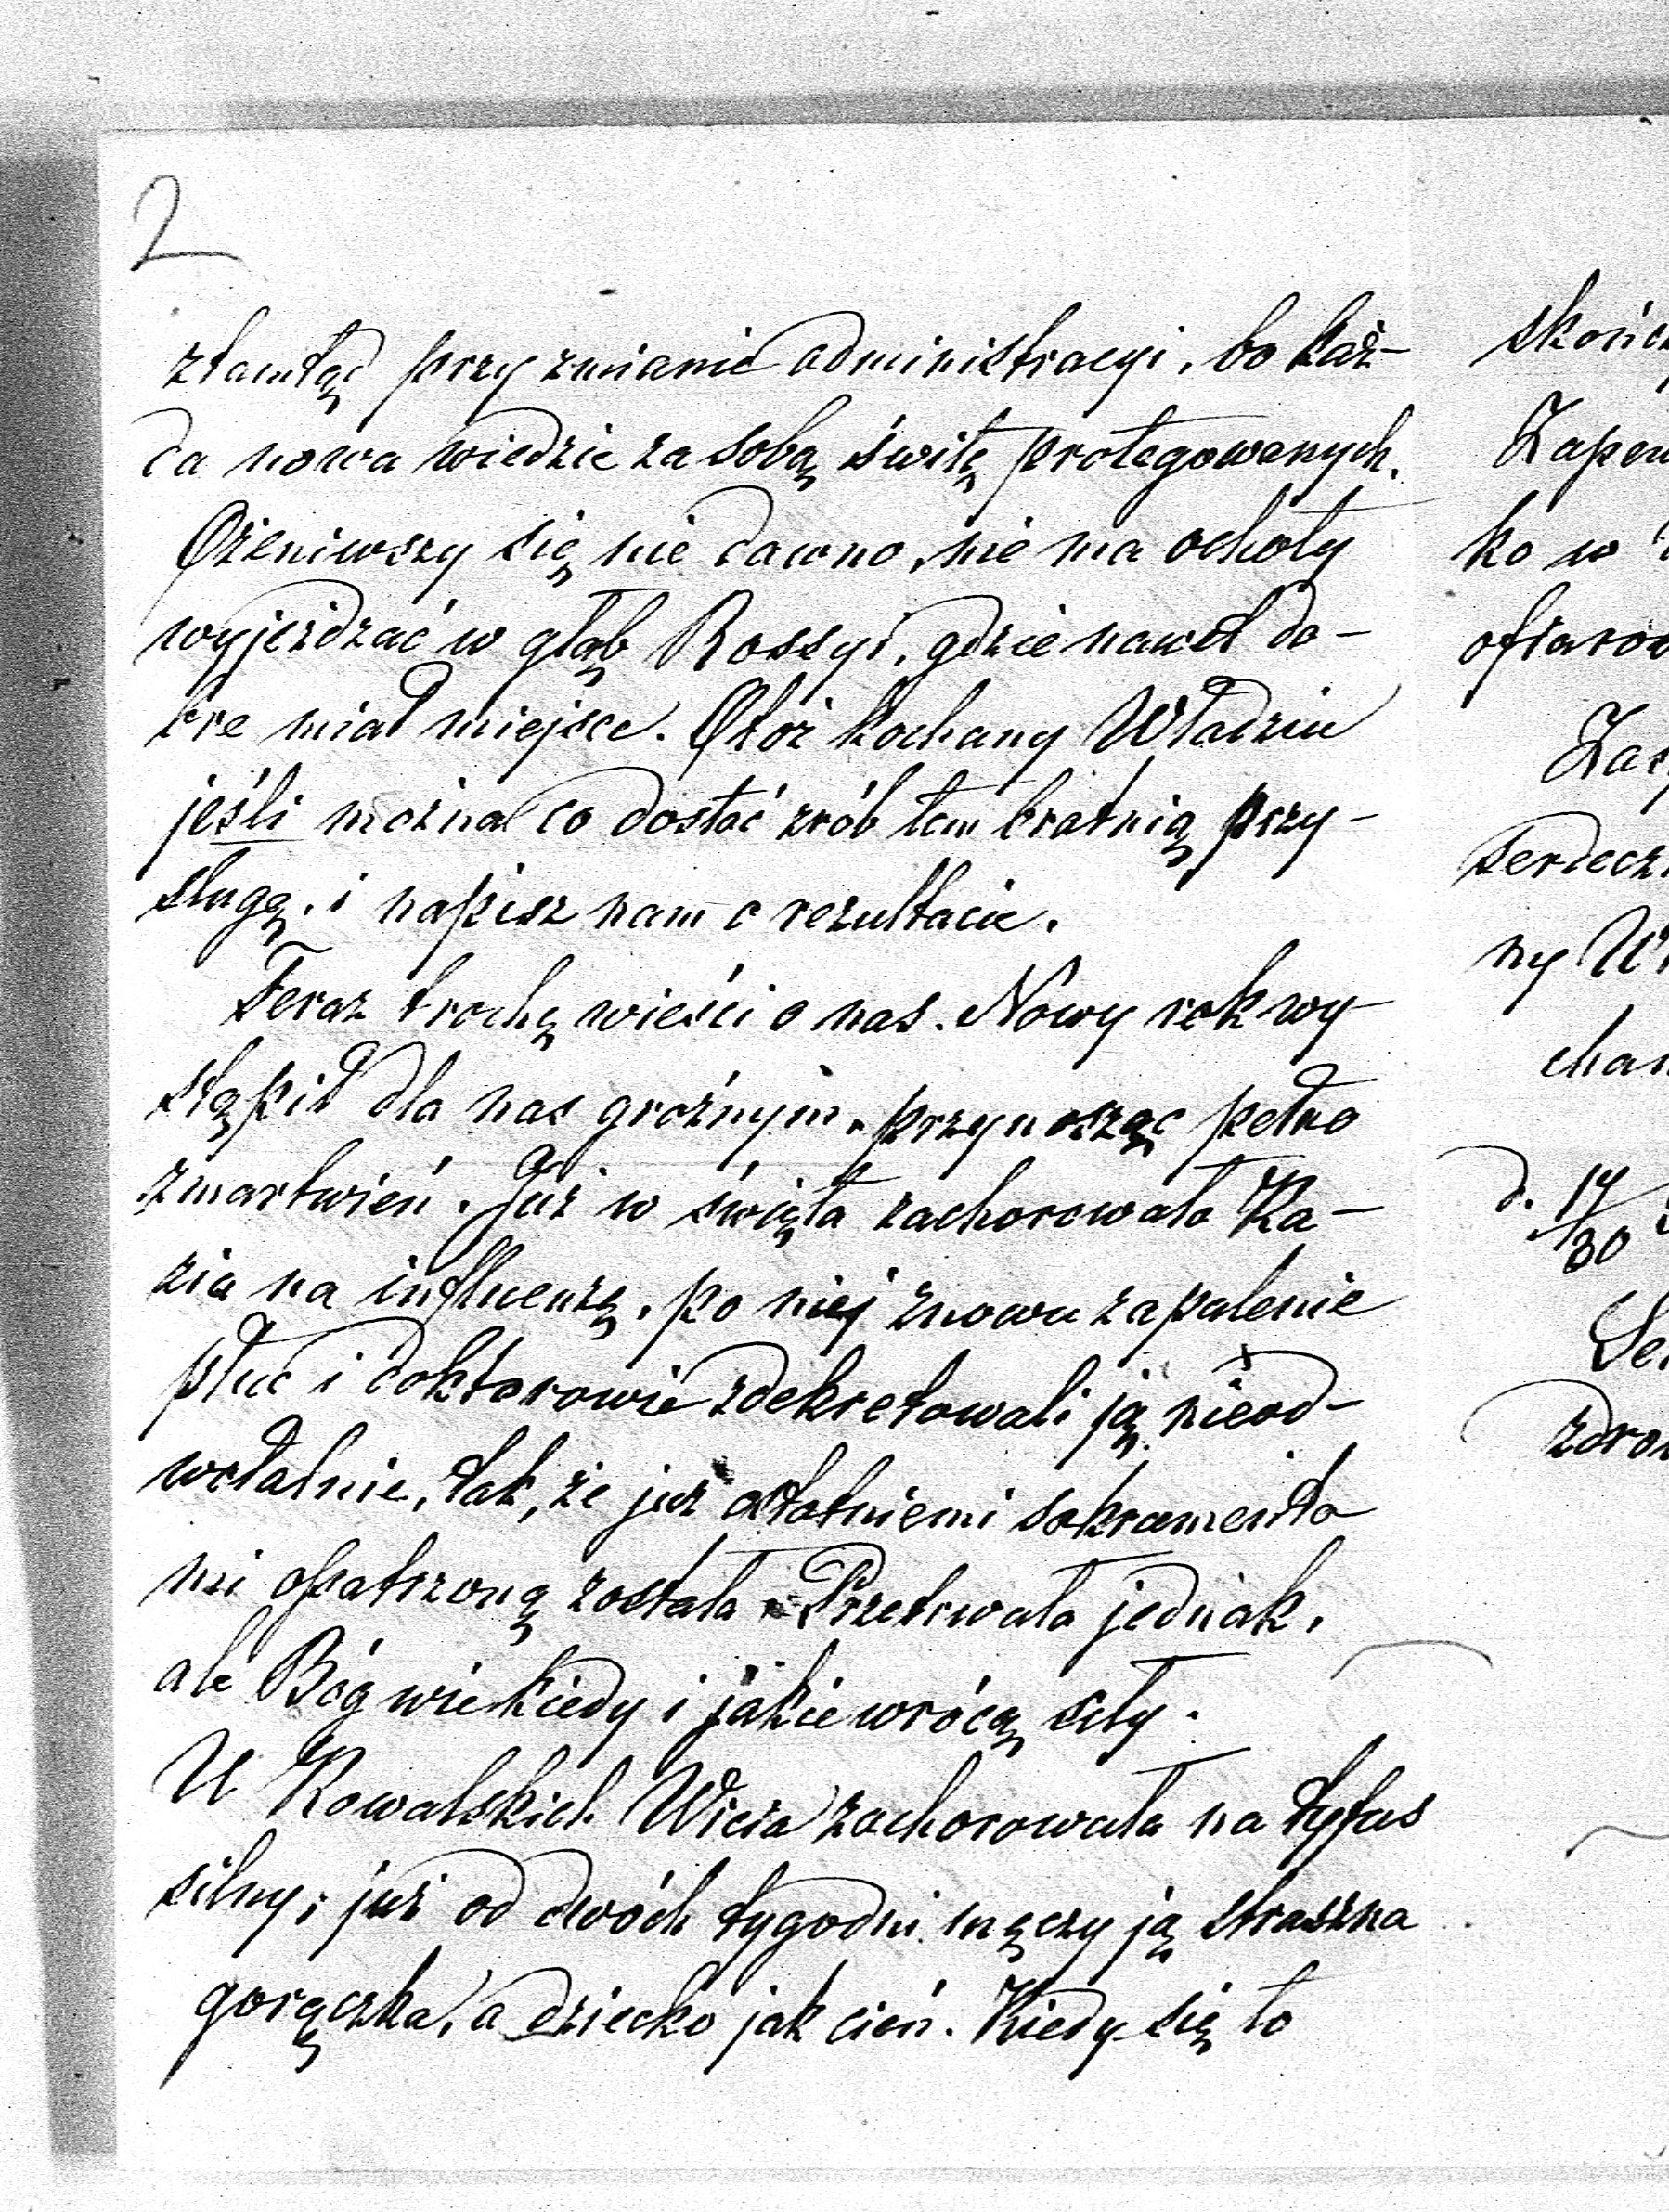 2
ztamtąd przy zmianie administracyi, bo każ-
da nowa wiedzie za sobą świtę protegowanych.
Ożeniwszy się nie dawno, nie ma ochoty
wyjeżdżać w głąb Rossyi, gdzie nawet do-
bre miał miejsce. Otóż kochany Władziu
jeśli można co dostać zrób tem bratnią przy-
sługę, i napisz nam o rezultacie.
Teraz trochę wieści o nas. Nowy rok wy-
stąpił dla nas groźnym, przynosząc pełno
zmartwień. Już w święta zachorowała Ka-
zia na influenzę, po niej znowu zapalenie
płuc i doktorowie zdekretowali ją nieod-
wołalnie, tak, że już ostatniemi sakramenta
mi opatrzoną została. Przetrwała jednak,
ale Bóg wie kiedy i jakie wrócą siły.
U Kowalskich Wicia zachorowała na tyfus
silny; już od dwóch tygodni męczy ją straszna
gorączka, a dziecko jak cień. Kiedy się to
skończ
Zapew
ko w
ofiarow
Zas
serdeczn
ny Wł
chan
d. 17/30
Se
zdrow